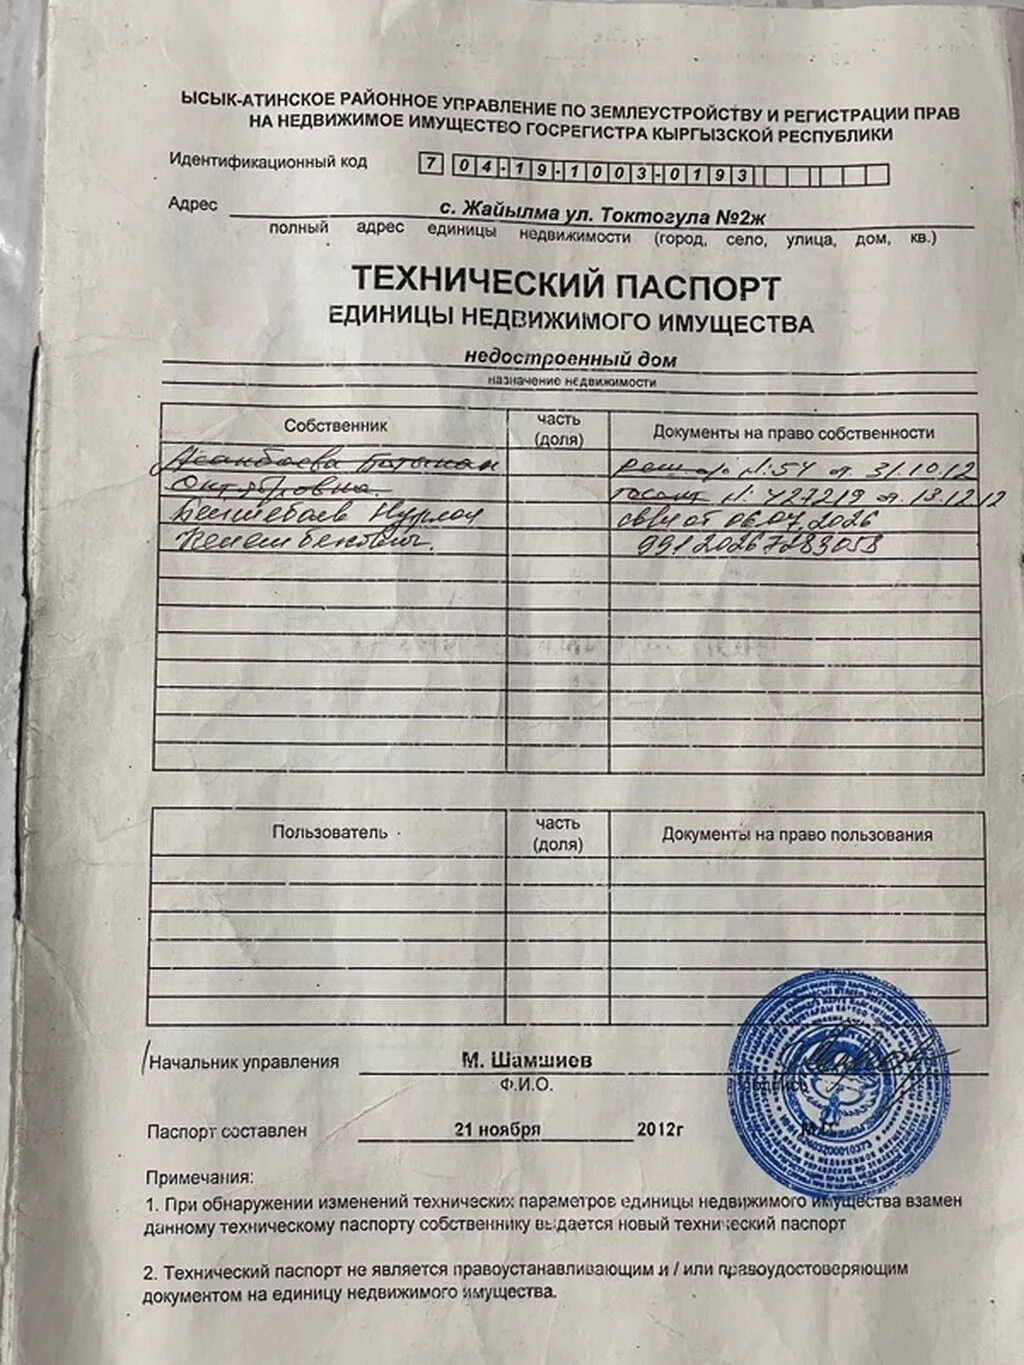 ЫСЫК-АТИНСКОЕ РАЙОННОЕ УПРАВЛЕНИЕ ПО ЗЕМЛЕУСТРОЙСТВУ И РЕГИСТРАЦИИ ПРАВ
НА НЕДВИЖИМОЕ ИМУЩЕСТВО ГОСРЕГИСТРА КЫРГЫЗСКОЙ РЕСПУБЛИКИ
Идентификационный код 7 04-19-1003-0193
Адрес с. Жайылма ул. Токтогула №2ж
полный адрес единицы недвижимости (город, село, улица, дом, кв.)
ТЕХНИЧЕСКИЙ ПАСПОРТ
ЕДИНИЦЫ НЕДВИЖИМОГО ИМУЩЕСТВА
недостроенный дом
назначение недвижимости
Собственник часть (доля) Документы на право собственности
№ 54 от 31.10.12
госакт № 427219 от 13.12.12
Нурлан от 06.07.2026
Кенешбекович. 99120267283058
Пользователь часть (доля) Документы на право пользования
Начальник управления М. Шамшиев
Ф.И.О. подпись
Паспорт составлен 21 ноября 2012г М.П.
Примечания:
1. При обнаружении изменений технических параметров единицы недвижимого имущества взамен
данному техническому паспорту собственнику выдается новый технический паспорт
2. Технический паспорт не является правоустанавливающим и / или правоудостоверяющим
документом на единицу недвижимого имущества.